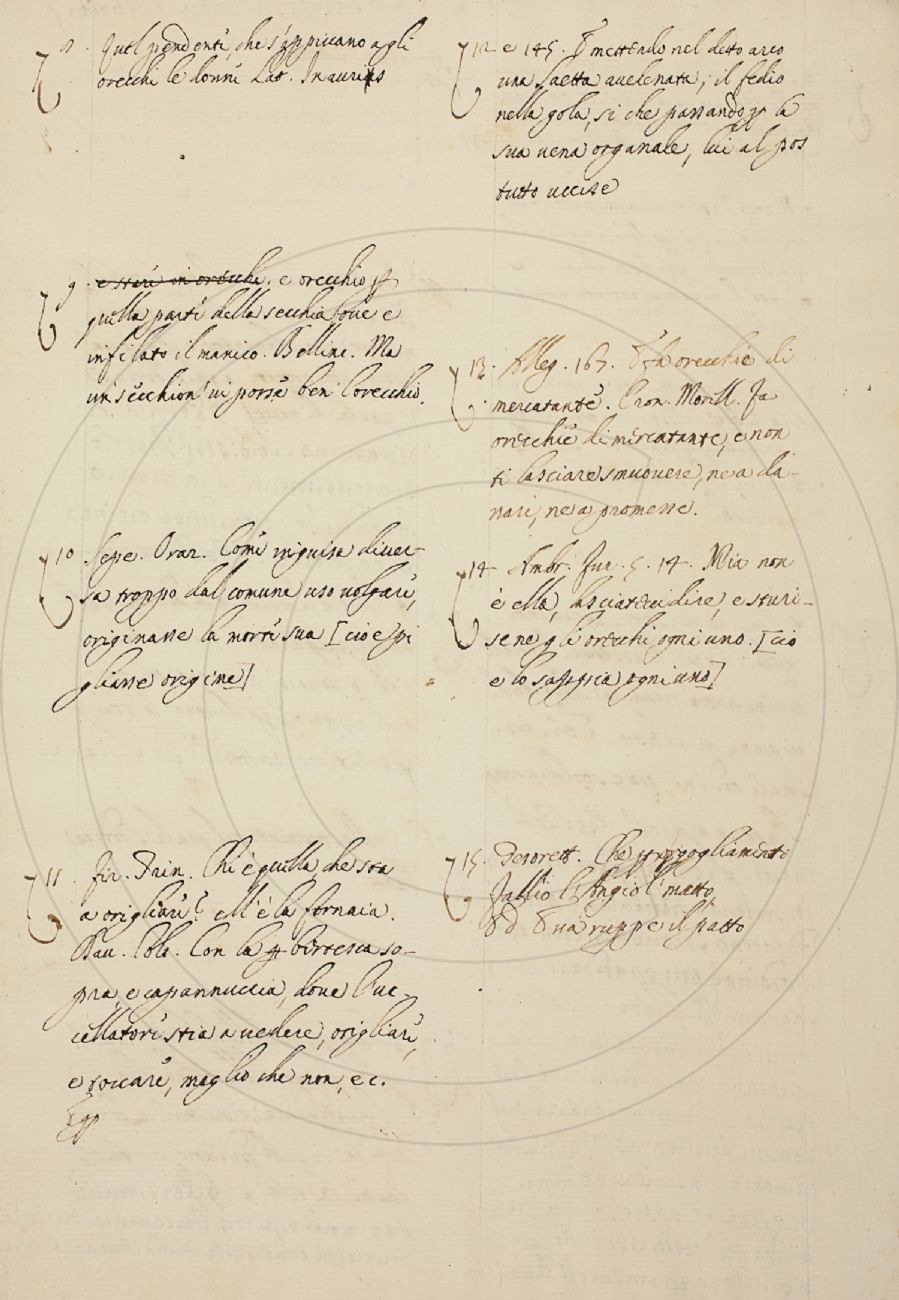 8. Quel pendente, che s'appiccano agli
orecchi le donne Lat. Inaures
9. e stare in orecchi. e orecchio
quella parte della secchia love e
infilato il manico. Bellinc. Ma
un secchion' vi porse ben l'orecchio.
10 Segr. Oraz. Come in guisa diver-
sa troppo dal comune uso volgare,
originasse la morte sua [cio è pi
gliasse origine]
11. Fir. Trin. Chi è quella, che sta
a origliare? ell' è la fornaia.
Dav. Colt. Con la bertesca so-
pra, e capannuccia, dove l'uc-
cellatore stia a vedere, origliare,
e toccare, meglio che non, ec.
12. e 145. E mettendo nel detto arco
una saetta avelenata, il fedio
nella gola, si che passandogli la
sua vena organale, lui al pos
tutto uccise
13. Alleg. 167. E fa orecchie di
mercatante. Cron. Morell. Fa
orecchie di mercatante, e non
ti lasciare smuovere, ne a da-
nari, ne a promesse.
14 Ambr. Fur. 5. 14. Mia non
è ella, lasciatevi dire, e sturi-
sene gli orecchi ogni uno. [cio
e lo sappia ogni uno]
15. Pecorett. Che
l'Angiol' matto,
Ed Eva ruppe il patto